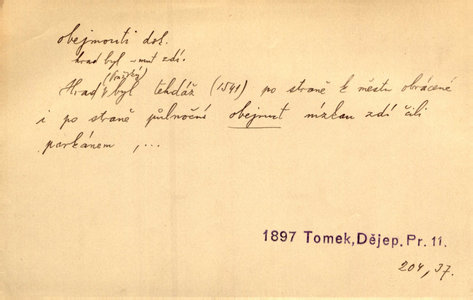 obejmouti dok.
hrad byl -mut zdí.
(Pražský)
Hrad byl tehdáž (1541) po straně k městu obrácené
i po straně půlnoční obejmut nízkou zdí čili
parkánem ,...
1897 Tomek, Dějep. Pr. 11.
204, 37.